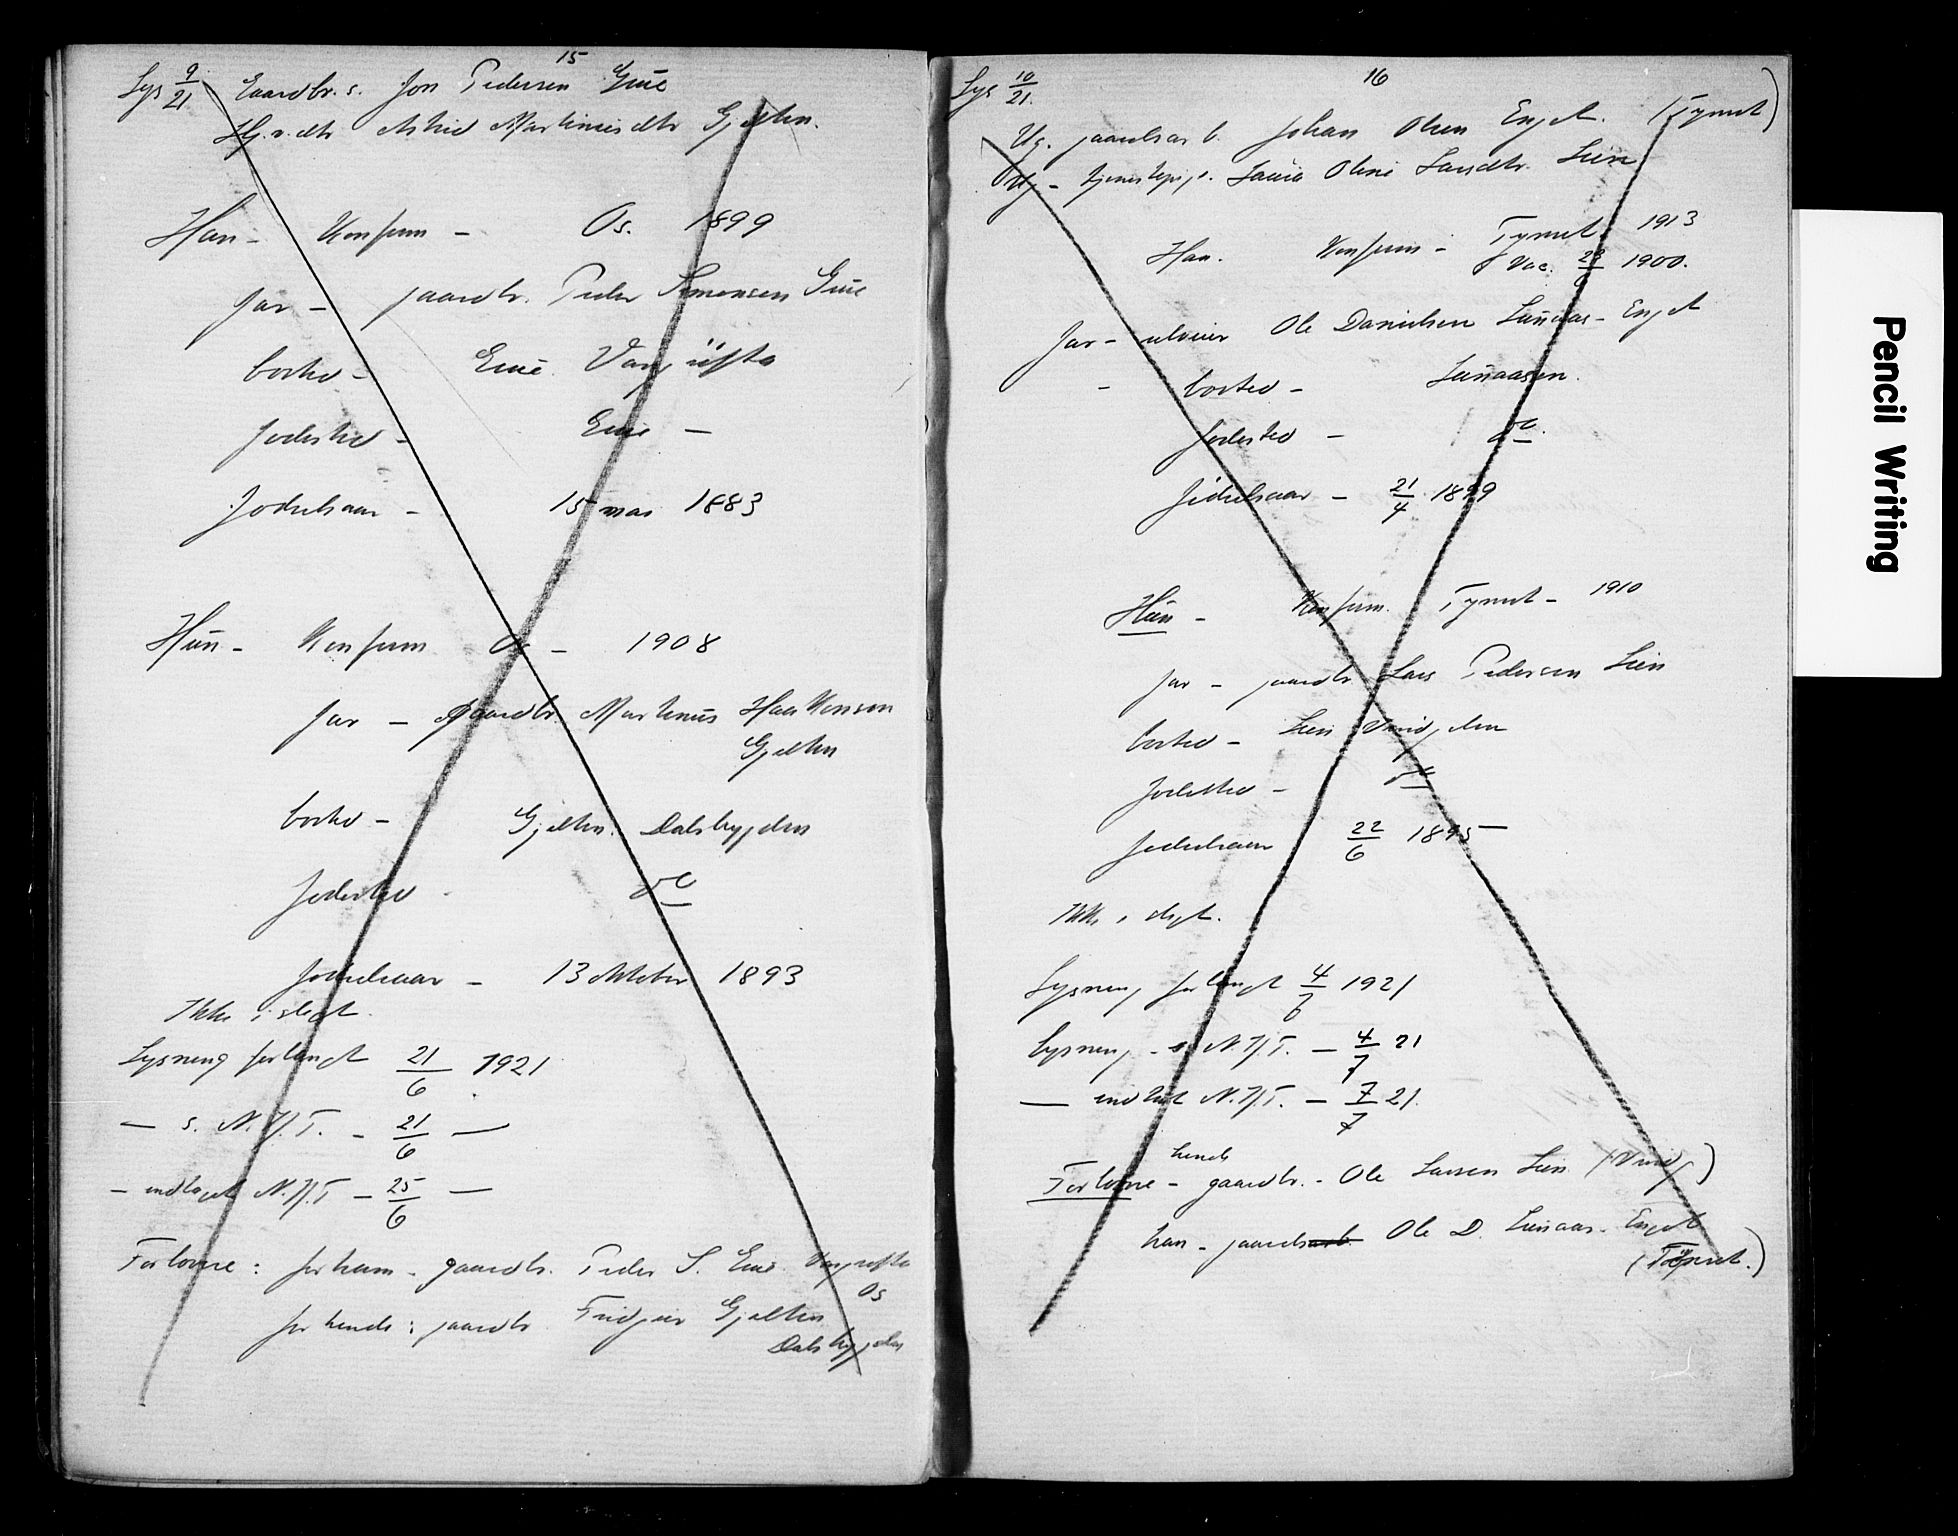 15
Lys 9/21 Gaardbr. s. Jon Pedersen Grue
Hj.v. dtr Astrid Martinusdtr Gjelten.
Han - Konfirm - Os. 1899
far - gaardbr. Peder Simonsen Grue
bosted - Vangrøfta
fødested -
fødselsaar - 15 mai 1883
Hun - Konfirm Os - 1908
far - gaardbr. Martinus Haakensen
Gjelten
bosted - Gjelten. Dalsbygden
fødested do
fødselsaar - 13 oktober 1893
Ikke i slegt.
Lysning forlangt 21/6 1921
— s. N. H. T. - 21/6 —
— indtaget N. H. T - 25/6 —
Forlovere: for ham - gaardbr. Peder S. Vangrøfta
Os
for hende: gaardbr Gjelten
Dalsbygden
16
Lys 10/21.
Ug. gaardsarb. Johan Olsen Enget. (Tynset)
Ug - tjenestepige. Oline Larsdtr. Lien
Han. Konfirm - Tynset 1913
Vac. 1900.
Far - Ole Danielsen Lunaas - Enget
- bosted - Lunaasen.
fødested - do.
fødselsaar - 21/4 1899
Hun - Konfirm. Tynset - 1910
far - gaardbr Lars Pedersen Lien
bosted - Lien
fødested - do
fødselsaar 22/6 1895 —
Ikke i slegt.
Lysning forlangt 4/7 1921
Lysning - s. N. H. T. - 4/7 21
— indtat N. H. T. - 7/7 21.
hends
Forlovere - gaardbr. - Ole Larsen Lien
han - Ole D. Lunaas - Enget
(Tynset.)
Pencil Writing